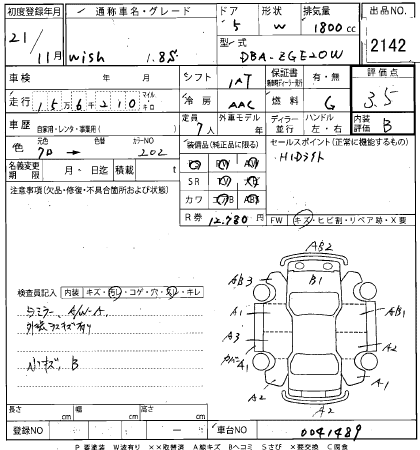 初度登録年月
21/11月
通称車名・グレード
wish 1.8S
ドア 5
形状 W
排気量 1800 cc
型式 DBA-ZGE20W
出品NO.
2142
車検 年 月
シフト 1AT
保証書 有・無
評価点 3.5
走行 15万6千210 マイル キロ
冷房 AAC
燃料 G
車歴 自家用・レンタ・事業用( )
定員 7人
外車モデル 年
ディーラー 並行
ハンドル 左・右
内装評価 B
色 元色 色替 カラーNO 202
装備品(純正品に限る)
セールスポイント(正常に機能するもの)
HIDライト
名義変更期限 月 日迄
積載 t
SR
カワ
R券 12,780 円
注意事項(欠品・修復・不具合箇所および状態)
FW キズ・ヒビ割・リペア跡・X要
検査員記入 内装 キズ・汚レ・コゲ・穴・スレ・キレ
小キズ、B
AB2
B1
AB3
AB1
A1
A3
A2
A1
A1
A2
A2
長さ cm
幅 cm
高さ cm
登録NO
車台NO 0041489
P 要塗装 W波有り ××取替済 A線キズ Bヘコミ Sさび ×要交換 C腐食